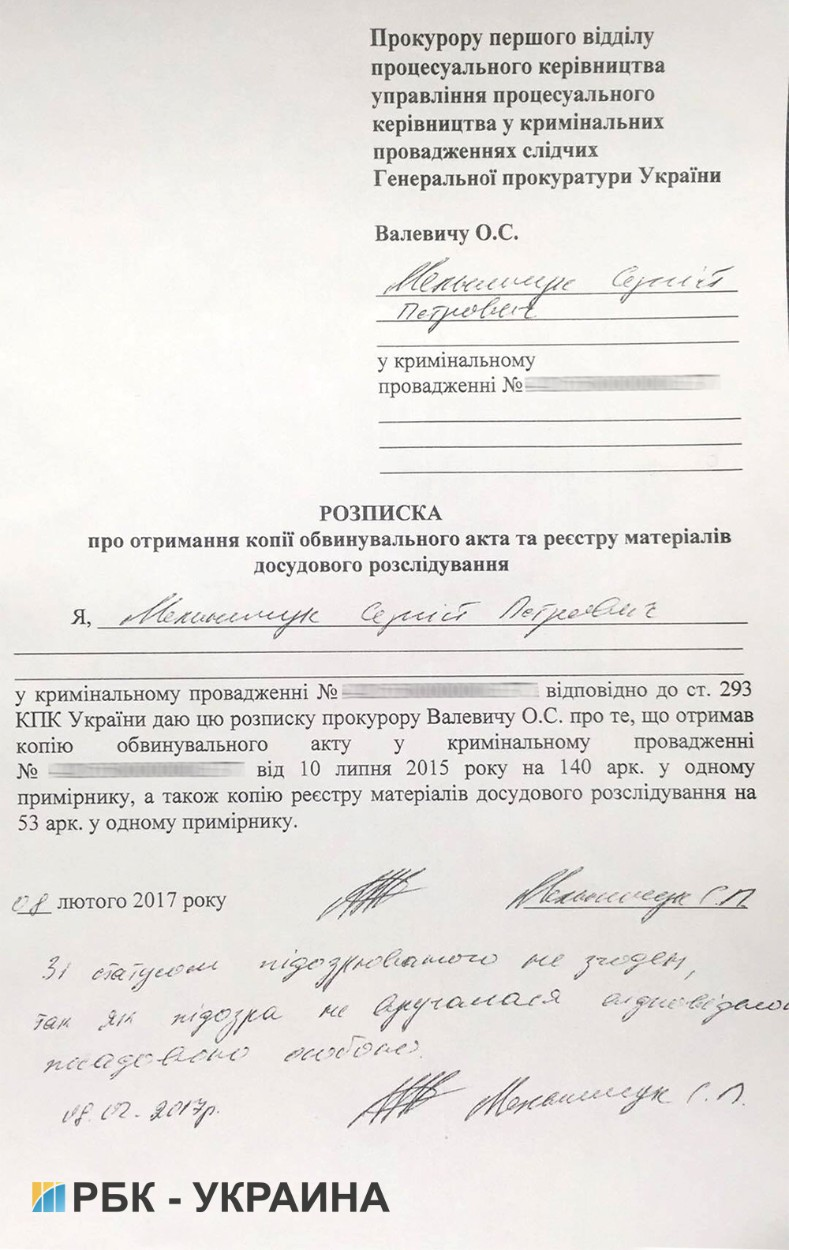 Прокурору першого відділу
процесуального керівництва
управління процесуального
керівництва у кримінальних
провадженнях слідчих
Генеральної прокуратури України
Валевичу О.С.
Мельничук Сергій
Петрович
у кримінальному
провадженні №
РОЗПИСКА
про отримання копії обвинувального акта та реєстру матеріалів
досудового розслідування
Я, Мельничук Сергій Петрович
у кримінальному провадженні № відповідно до ст. 293
КПК України даю цю розписку прокурору Валевичу О.С. про те, що отримав
копію обвинувального акту у кримінальному провадженні
№ від 10 липня 2015 року на 140 арк. у одному
примірнику, а також копію реєстру матеріалів досудового розслідування на
53 арк. у одному примірнику.
08 лютого 2017 року Мельничук С.П.
Зі статусом підозрюваного не згоден,
так як підозра не вручалася відповідною
посадовою особою.
08.02.2017р. Мельничук С.П.
РБК - УКРАИНА